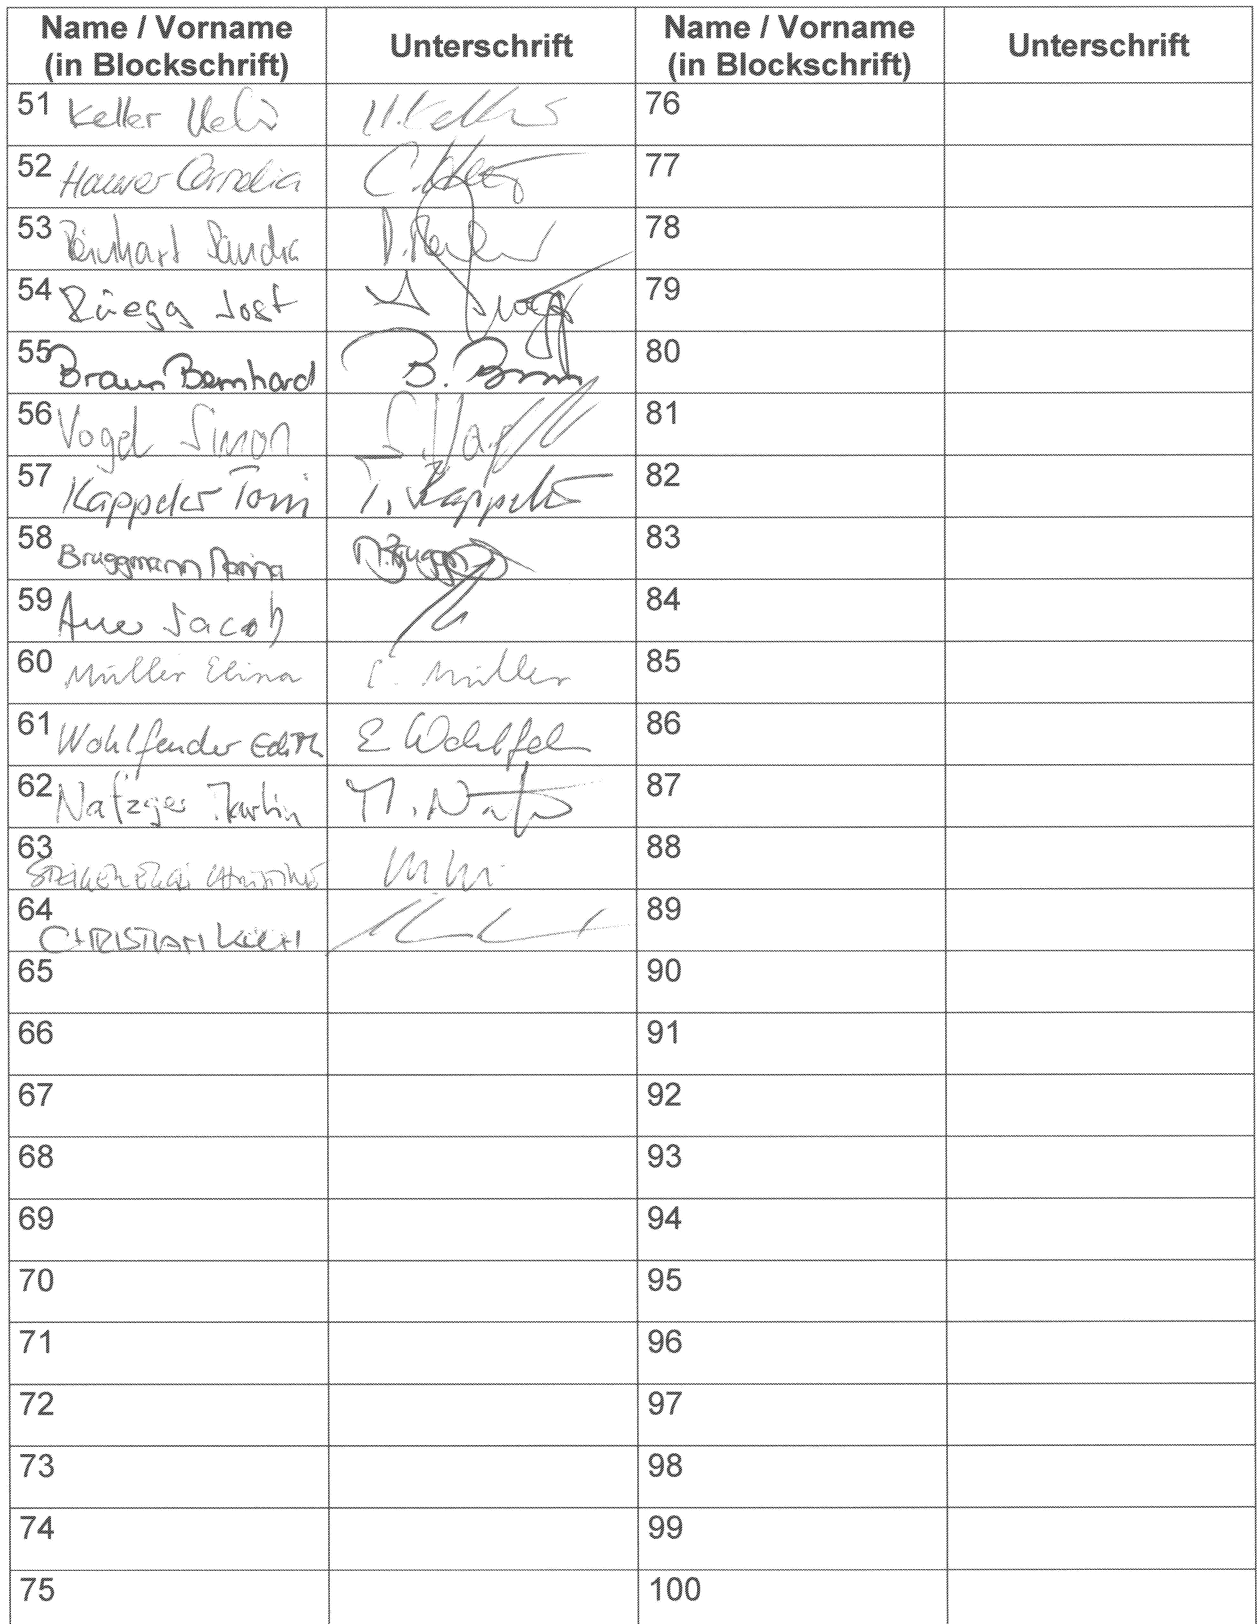 Name / Vorname Unterschrift Name / Vorname Unterschrift
(in Blockschrift) (in Blockschrift)
51 Keller Ueli 76
52 Hauser Cornelia 77
53 Reinhart Sandra 78
54 Rüegg Jost 79
55 Braun Bernhard B. Braun 80
56 Vogel Simon 81
57 Kappeler Toni T. Kappeler 82
58 Bruggmann Marina 83
59 Auer Jacob 84
60 Müller Elina E. Müller 85
61 Wohlfender Edith E Wohlfe 86
62 Nafzger Martin M. 87
63 88
64 CHRISTIAN KOCH 89
65 90
66 91
67 92
68 93
69 94
70 95
71 96
72 97
73 98
74 99
75 100